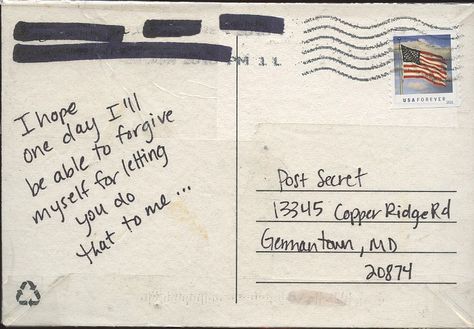 PM 11
USA FOREVER
I hope
one day I'll
be able to forgive
myself for letting
you do
that to me...
Post Secret
13345 Copper Ridge Rd
Germantown, MD
20874